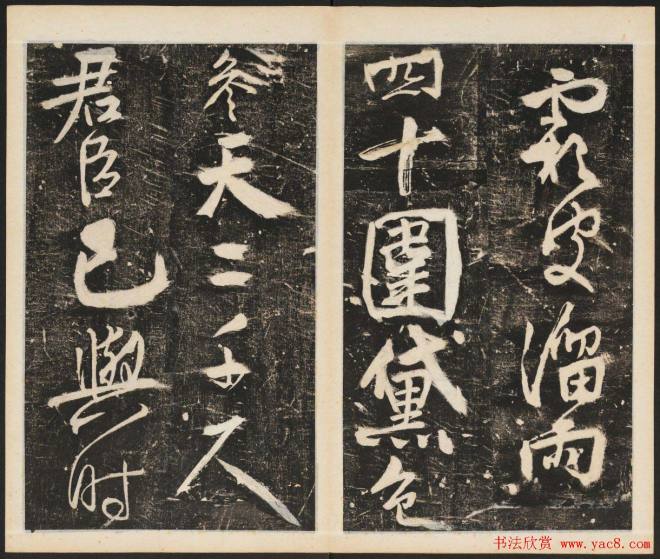 霜皮溜雨
四十圍黛色
參天二千尺
君臣已與时
书法欣赏 www.yac8.com